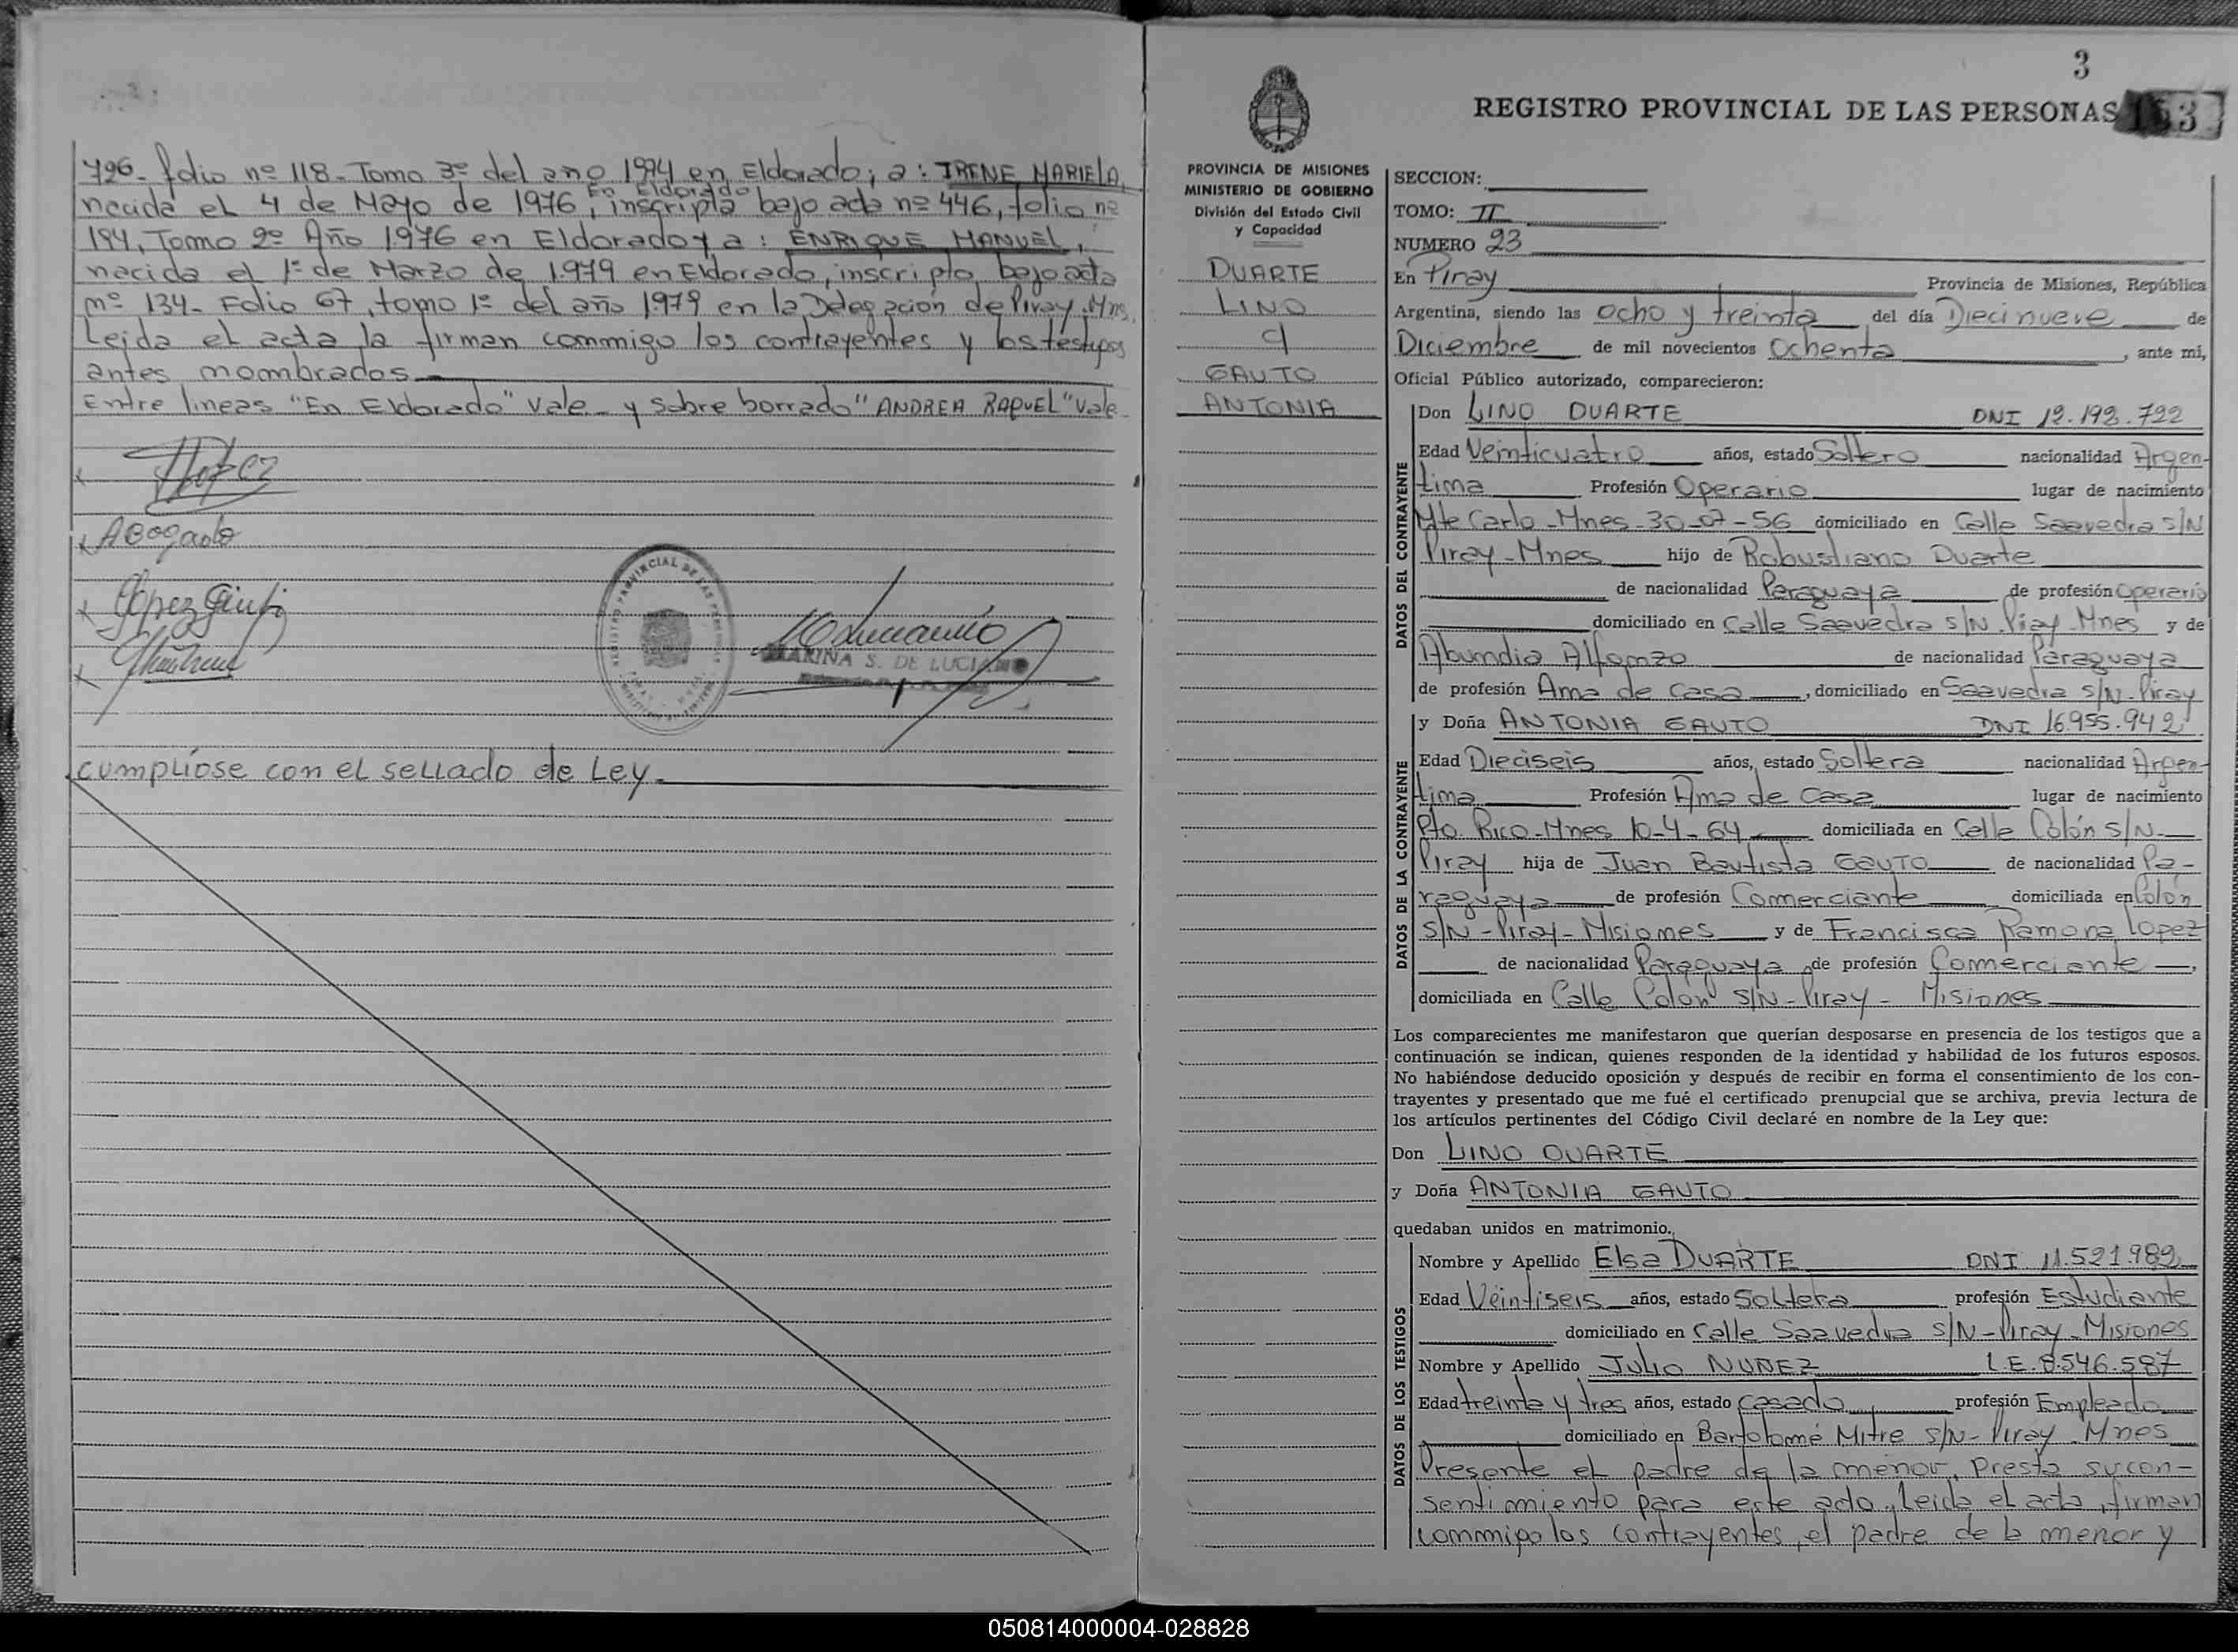 796- folio nº 118- Tomo 3º del año 1974 en Eldorado; a: IRENE MARIELA,
En Eldorado
nacida el 4 de Mayo de 1976, inscripta bajo acta nº 446, folio nº
194, Tomo 2º Año 1976 en Eldorado y a: ENRIQUE MANUEL,
nacido el 1º de Marzo de 1979 en Eldorado, inscripto bajo acta
nº 134- Folio 67, tomo 1º del año 1979 en la Delegación de Piray. Mnes.
Leida el acta la firman commigo los contrayentes y los testigos
antes mombrados
Entre lineas "En Eldorado" vale- y sobre borrado "ANDREA RAQUEL" vale-
REGISTRO PROVINCIAL DE LAS PERSONAS
MARINA S. DE LUCIANO
cumplióse con el sellado de Ley-
3
REGISTRO PROVINCIAL DE LAS PERSONAS
PROVINCIA DE MISIONES
MINISTERIO DE GOBIERNO
División del Estado Civil
y Capacidad
DUARTE
LINO
GAUTO
ANTONIA
SECCION:
TOMO: II
NUMERO 23
En Piray Provincia de Misiones, República
Argentina, siendo las ocho y treinta del día Diecinueve de
Diciembre de mil novecientos Ochenta, ante mi,
Oficial Público autorizado, comparecieron:
DATOS DEL CONTRAYENTE
Don LINO DUARTE DNI 12.192.722
Edad Veinticuatro años, estado Soltero nacionalidad Argen-
tima Profesión Operario lugar de nacimiento
Mte Carlo-Mnes-30-07-56 domiciliado en Calle Saavedra S/N
Piray-Mnes hijo de Robustiano Duarte
de nacionalidad Paraguaya de profesión Operario
domiciliado en Calle Saavedra S/N. Piray-Mnes y de
Abundia Alfonzo de nacionalidad Paraguaya
de profesión Ama de casa, domiciliado en Saavedra S/N-Piray
DATOS DE LA CONTRAYENTE
y Doña ANTONIA GAUTO DNI 16.955.942
Edad Dieciseis años, estado Soltera nacionalidad Argen-
tima Profesión Ama de Casa lugar de nacimiento
Pto. Rico-Mnes 10-4-64 domiciliada en Calle Colón S/N-
Piray hija de Juan Bautista GAUTO de nacionalidad Pa-
raguaya de profesión Comerciante domiciliada en Colón
S/N-Piray-Misiones y de Francisca Ramona Lopez
de nacionalidad Paraguaya de profesión Comerciante,
domiciliada en Calle Colón S/N-Piray- Misiones
Los comparecientes me manifestaron que querían desposarse en presencia de los testigos que a
continuación se indican, quienes responden de la identidad y habilidad de los futuros esposos.
No habiéndose deducido oposición y después de recibir en forma el consentimiento de los con-
trayentes y presentado que me fué el certificado prenupcial que se archiva, previa lectura de
los artículos pertinentes del Código Civil declaré en nombre de la Ley que:
Don LINO DUARTE
y Doña ANTONIA GAUTO
quedaban unidos en matrimonio.
DATOS DE LOS TESTIGOS
Nombre y Apellido Elsa DUARTE DNI 11.521.982
Edad Veintiseis años, estado Soltera profesión Estudiante
domiciliado en Calle Saavedra S/N-Piray-Misiones
Nombre y Apellido Julio NUÑEZ L.E. 8.546.587
Edad treinta y tres años, estado casado profesión Empleado
domiciliado en Bartolomé Mitre S/N-Piray-Mnes
Presente el padre de la menor, presta su con-
sentimiento para este acto, leida el acta, firman
commigo los contrayentes, el padre de la menor y
050814000004-028828